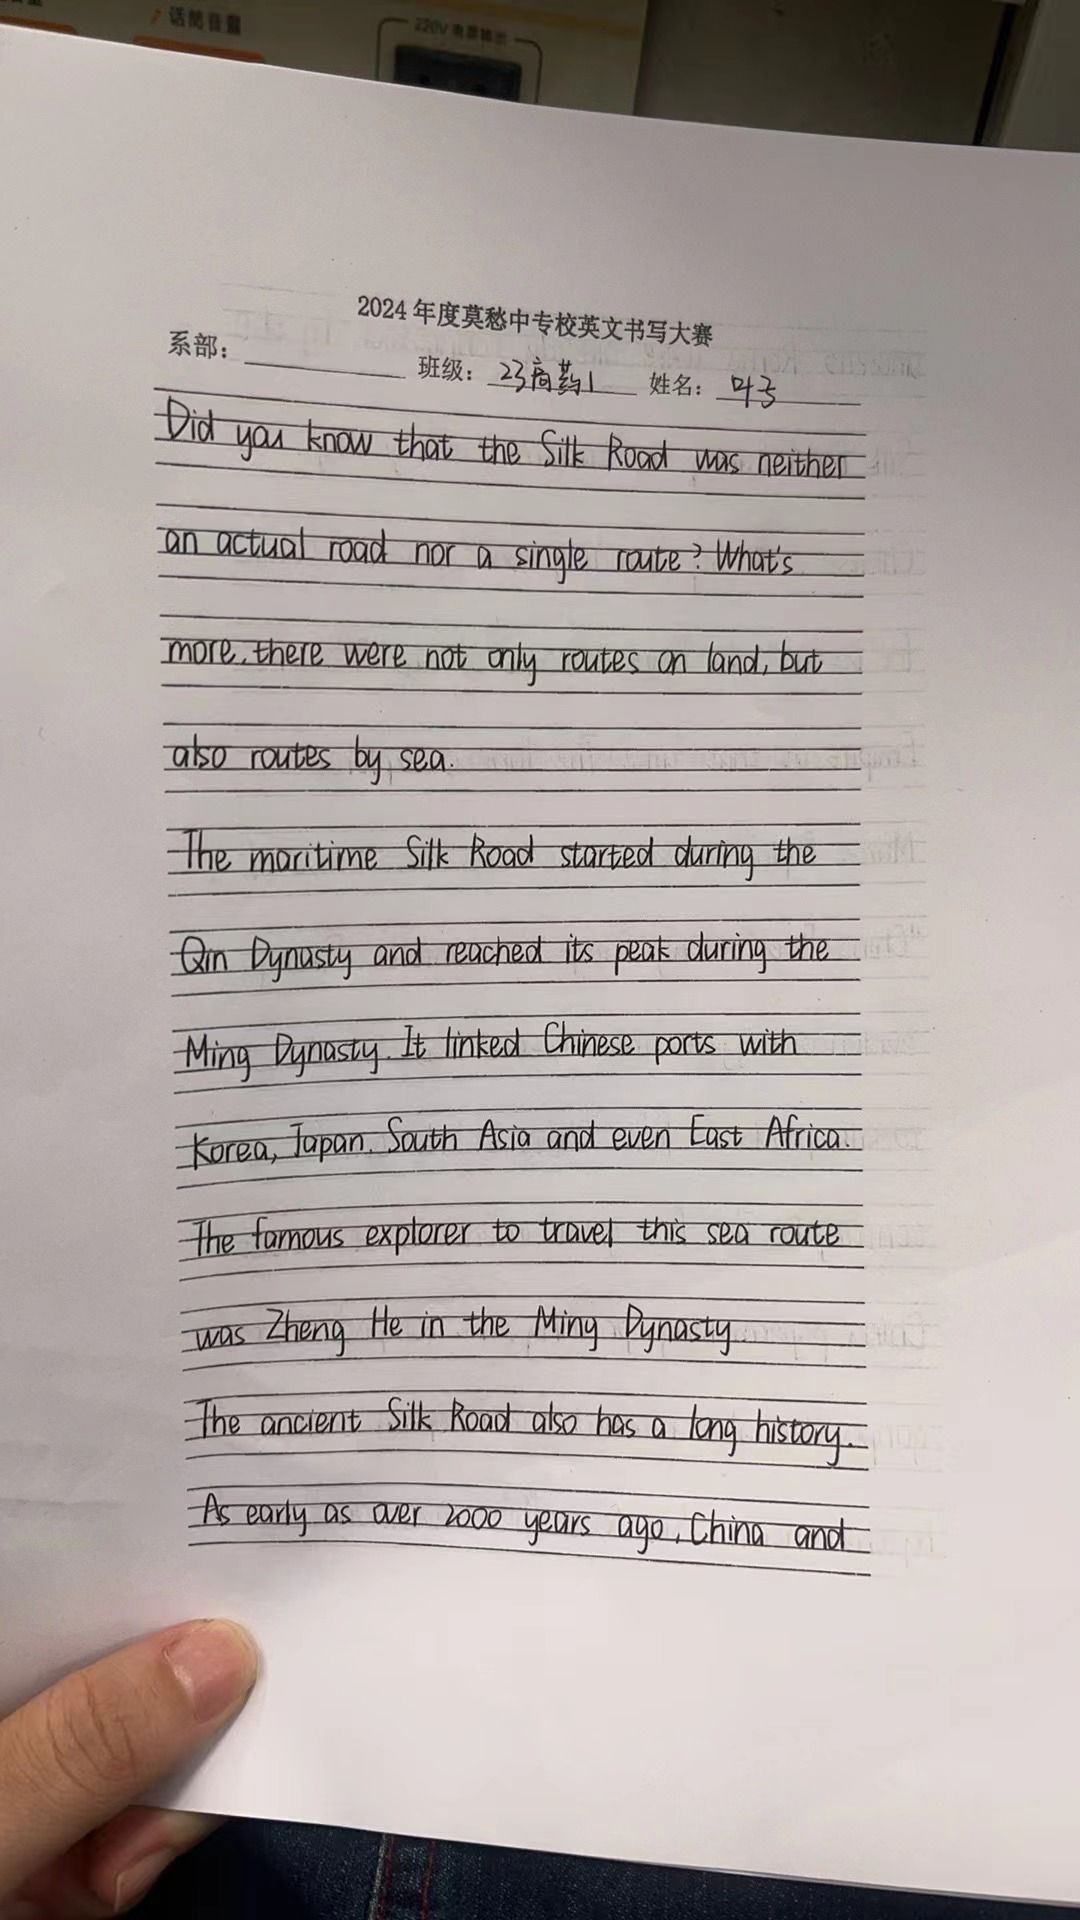 话筒音量
220V 电源输出
2024 年度莫愁中专校英文书写大赛
系部： 班级：23商药1 姓名：
Did you know that the Silk Road was neither
an actual road nor a single route? What's
more, there were not only routes on land, but
also routes by sea.
The maritime Silk Road started during the
Qin Dynasty and reached its peak during the
Ming Dynasty. It linked Chinese ports with
Korea, Japan. South Asia and even East Africa.
The famous explorer to travel this sea route
was Zheng He in the Ming Dynasty
The ancient Silk Road also has a long history.
As early as over 2000 years ago, China and